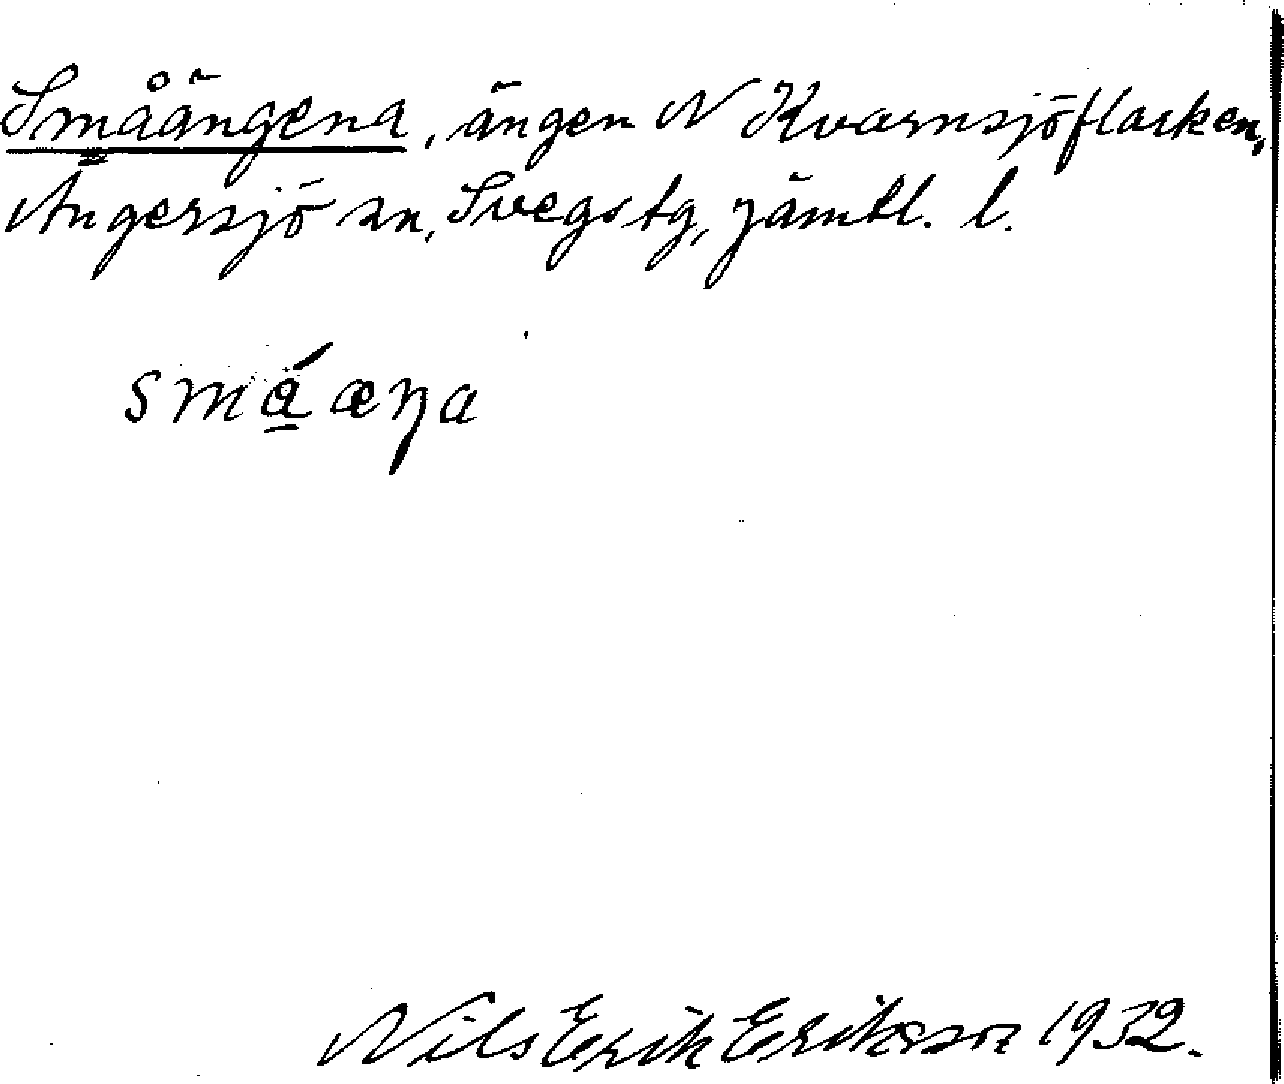 Småängena, ängen N Kvarnsjöflarken,
Ängersjö sn, Svegs tg, Jämtl. l.
småæŋa
Nils Erik Eriksson 1932.